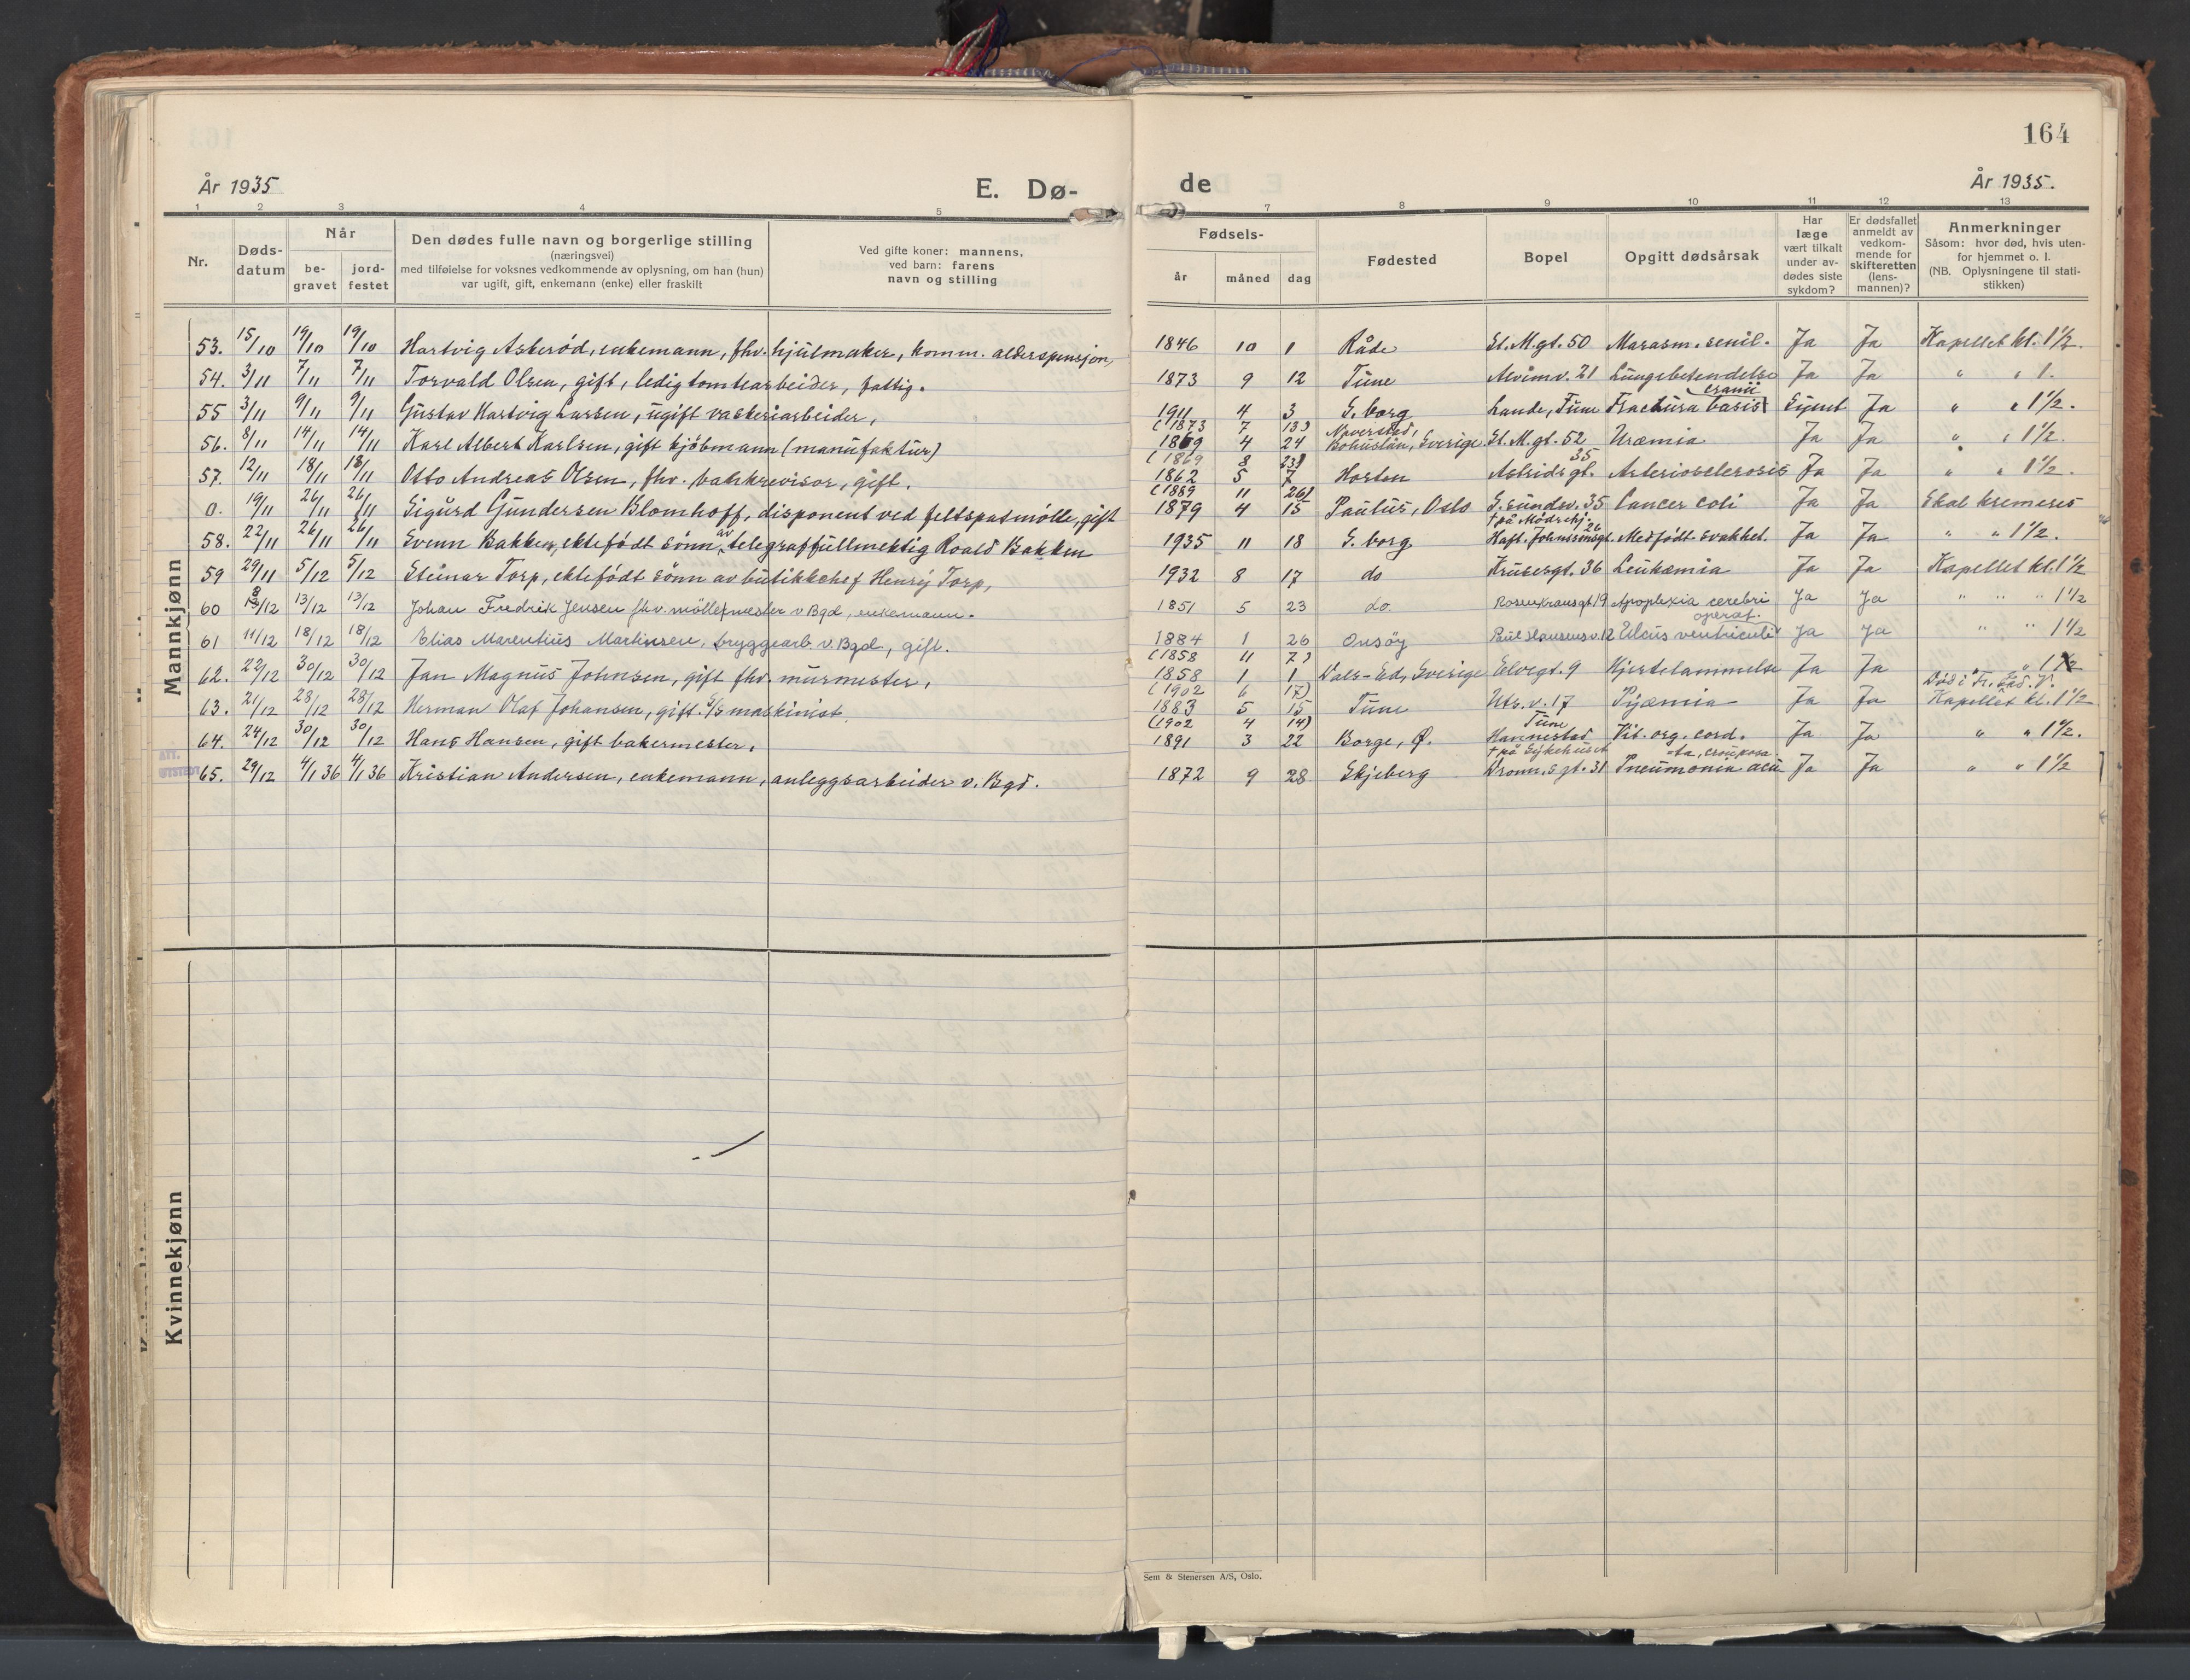 164
År 1935
E. Dø-
de
År 1935.
1 2 3 4 5 7 8 9 10 11 12 13
Nr.
Døds-
datum
Når
be-
gravet
jord-
festet
Den dødes fulle navn og borgerlige stilling
(næringsvei)
med tilføielse for voksnes vedkommende av oplysning, om han (hun)
var ugift, gift, enkemann (enke) eller fraskilt
Ved gifte koner: mannens,
ved barn: farens
navn og stilling
Fødsels-
år måned dag
Fødested
Bopel
Opgitt dødsårsak
Har
læge
vært tilkalt
under av-
dødes siste
sykdom?
Er dødsfallet
anmeldt av
vedkom-
mende for
skifteretten
(lens-
mannen)?
Anmerkninger
Såsom: hvor død, hvis uten-
for hjemmet o. l.
(NB. Oplysningene til stati-
stikken)
Mannkjønn
53. 15/10 19/10 19/10 Hartvig Asberød, enkemann, fhv. hjulmaker, komm. alderspensjon, 1846 10 1 Råde St. M.gt. 50 Marasm. senil. Ja Ja Kapellet kl. 1 1/2.
54. 3/11 7/11 7/11 Torvald Olsen, gift, ledig tomtearbeider, fattig. 1873 9 12 Tune Alvimv. 21 Lungebetendelse Ja Ja " " 1.
cranii
55 3/11 9/11 9/11 Gustav Hartvig Larsen, ugift vaskeriarbeider, 1911 4 3 S. borg Lande, Tune Fractura basis Synt Ja " " 1 1/2.
(1873 7 13) Naverstad,
56. 8/11 14/11 14/11 Karl Albert Karlsen, gift kjøbmann (manufaktur) 1869 4 24 Bohuslän, Sverige St. M. gt. 52 Uræmia Ja Ja " " 1 1/2.
(1869 8 23) 35
57. 12/11 18/11 18/11 Otto Andreas Olsen, fhv. bankrevisor, gift. 1862 5 7 Horten Astrids gt. Arteriosclerosis Ja Ja " " 1 1/2.
(1889 11 26)
0. 19/11 26/11 26/11 Sigurd Gundersen Blomhoff, disponent ved feltspatmølle, gift 1879 4 15 Paulus, Oslo S. sundsv. 35 Cancer coli Ja Ja Skal kremeres
† på Mødrehj. 26
58. 22/11 26/11 26/11 Svenn Bakken, ektefødt sønn av telegraffullmektig Roald Bakken 1935 11 18 S. borg Haft. Johnsensgt. Medfødt svakhet. Ja Ja " " 1 1/2.
59 29/11 5/12 5/12 Steinar Torp, ektefødt sønn av butikkchef Henry Torp, 1932 8 17 do Krusesgt. 36 Leukæmia Ja Ja Kapellet kl. 1 1/2
60 8/12 13/12 13/12 Johan Fredrik Jensen fhv. møllermester v Bgd, enkemann. 1851 5 23 do. Rosenkransgt 19 Apoplexia cerebri Ja Ja " " " 1 1/2
operat.
61 11/12 18/12 18/12 Elias Marentius Martinsen, bryggearb. v. Bgd, gift. 1884 1 26 Onsøy Paul Hansens v. 12 Ulcus ventriculi Ja Ja " " " 1 1/2
(1858 11 7)
62. 22/12 30/12 30/12 Jan Magnus Johnsen, gift fhv. murmester, 1858 1 1 Dals-Ed, Sverige Elvegt. 9 Hjertelammelse Ja Ja " " 1
(1902 6 17) Død i Fr.stad. V.
63. 21/12 28/12 28/12 Herman Olaf Johansen, gift. S/S maskinist, 1883 5 15 Tune Uts. v. 17 Pyæmia Ja Ja Kapellet kl. 1 1/2
(1902 4 14) Tune
64. 24/12 30/12 30/12 Hans Hansen, gift bakermester, 1891 3 22 Borge, Ø. Hannestad Vit. org. cord. Ja Ja " " 1 1/2.
ATT.
UTSTEDT
† på Sykehuset =ta, crouposa
65. 29/12 4/1 36 4/1 36 Kristian Andersen, enkemann, anleggsarbeider v. Bgd. 1872 9 28 Skjeberg Dronn.s gt. 31 Pneumonia acu Ja Ja " " 1 1/2
Kvinnekjønn
Sem & Stenersen A/S, Oslo.